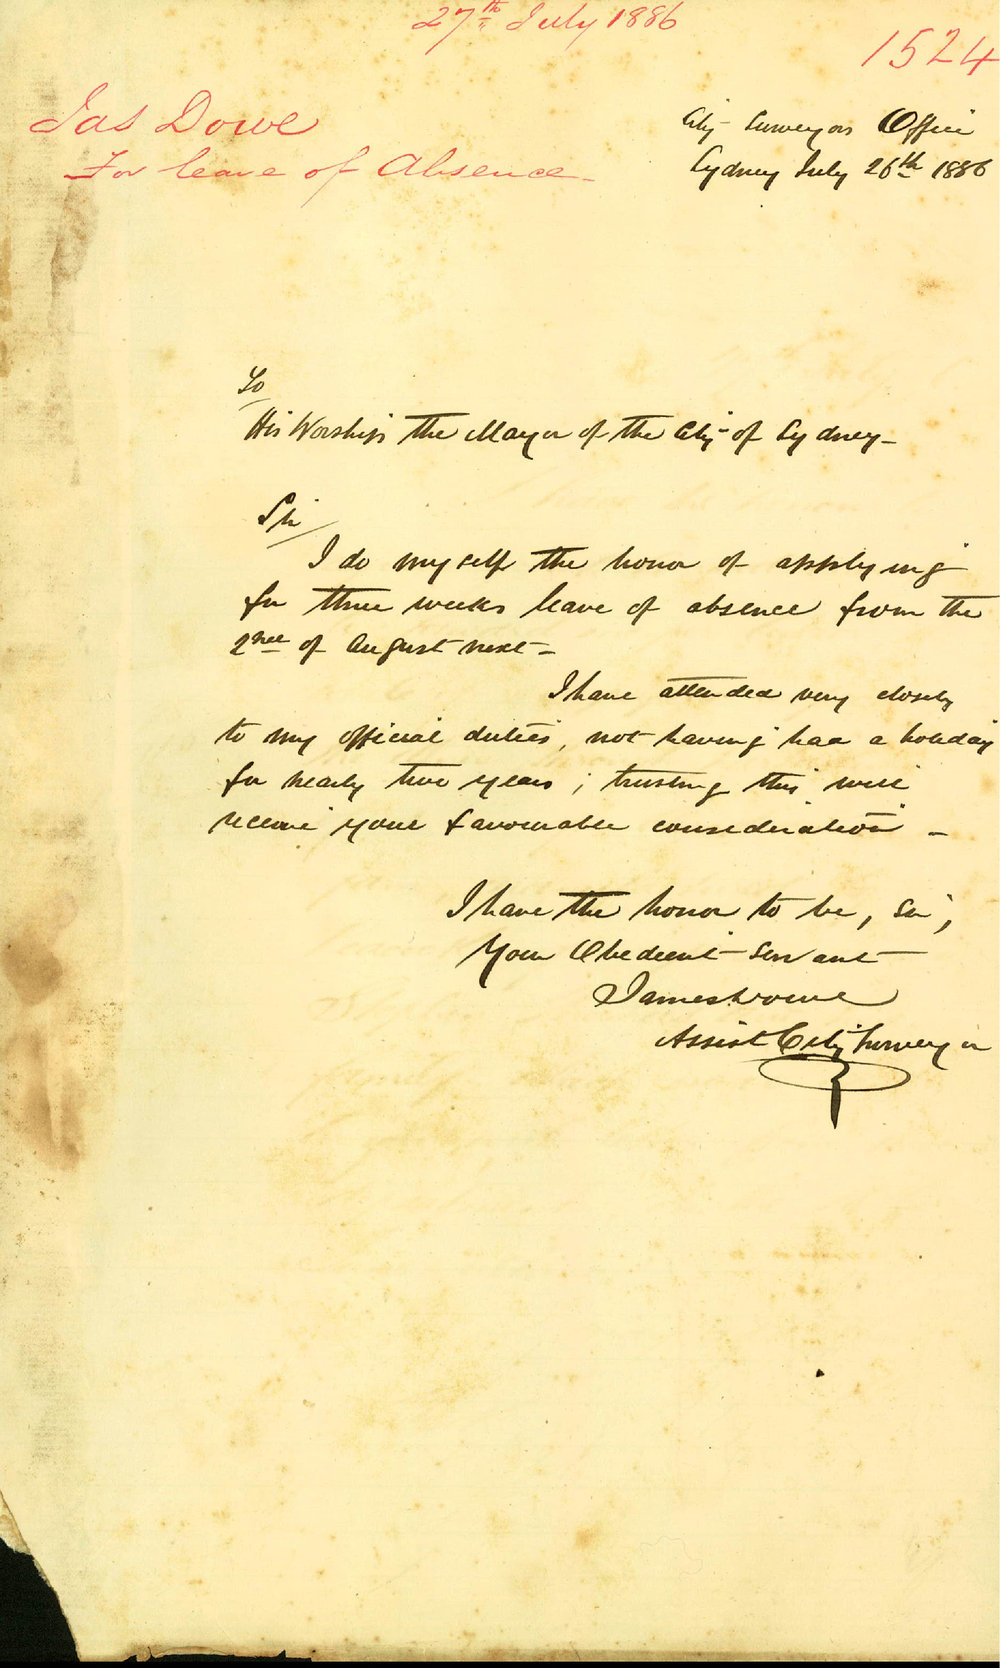 27th July 1886
1524
Jas Dowe
For leave of Absence -
City Surveyors Office
Sydney July 26th 1886
To
His Worship the Mayor of the City of Sydney -
Sir
I do myself the honor of applying
for three weeks leave of absence from the
2nd of August next -
I have attended very closely
to my official duties, not having had a holiday
for nearly two years; trusting this will
receive your favourable consideration -
I have the honor to be, Sir,
Your Obedient Servant
James Dowe
Assist City Surveyor